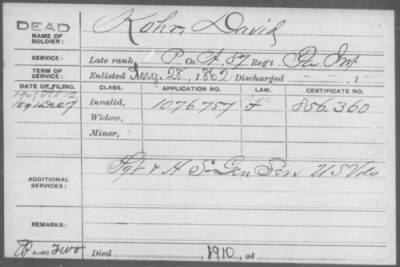 DEAD
NAME OF SOLDIER:
Kohr, David
SERVICE:
Late rank, P Co. A, 87 Reg't Pa Inf
TERM OF SERVICE:
Enlisted Aug 28, 1862 Discharged , 1
DATE OF FILING. CLASS. APPLICATION NO. LAW. CERTIFICATE NO.
Invalid, 1076.757 856.360
Widow,
Minor,
ADDITIONAL SERVICES:
& H S Gen Serv U S Vols
REMARKS:
Died , 1910, at